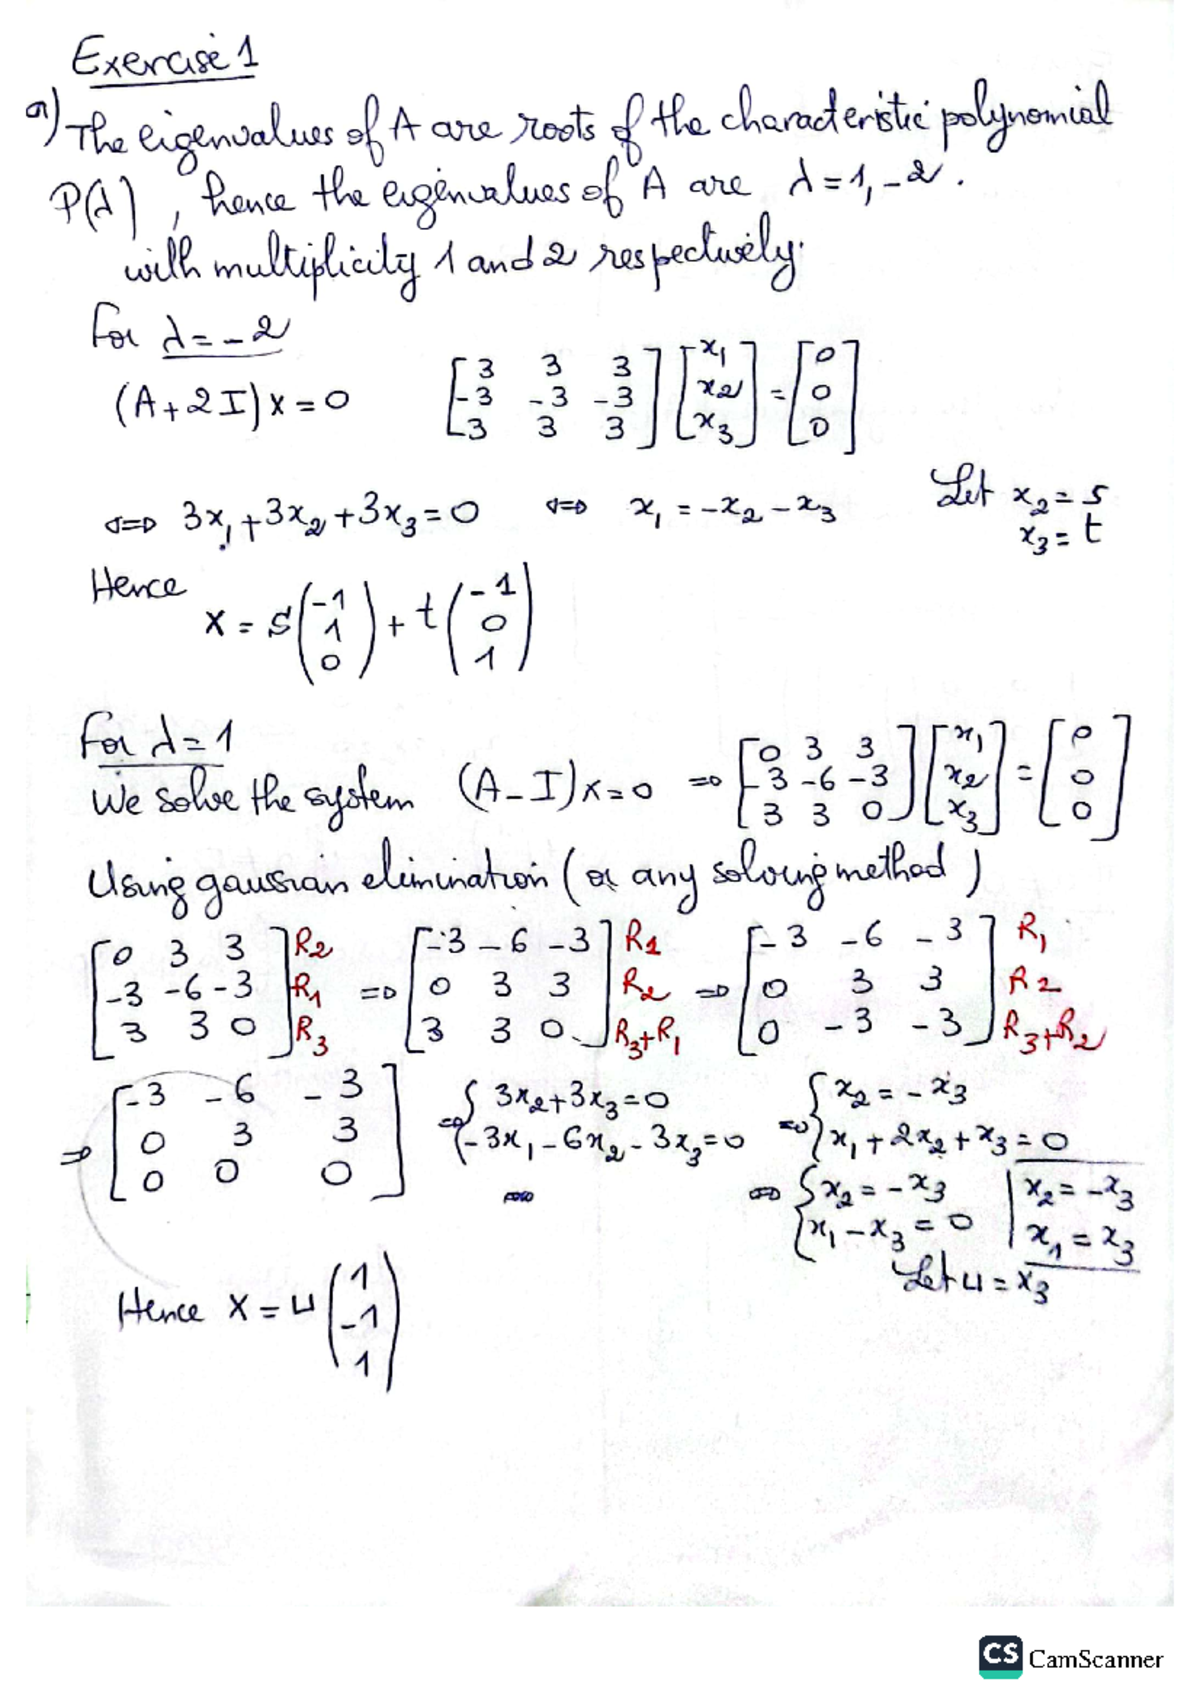 Exercise 1
a) The eigenvalues of A are roots of the characteristic polynomial
P(λ), hence the eigenvalues of A are λ=1,-2.
with multiplicity 1 and 2 respectively.
For λ=-2
(A+2I)x=0 [3 3 3; -3 -3 -3; 3 3 3] [x₁; x₂; x₃] = [0; 0; 0]
⇔ 3x₁+3x₂+3x₃=0 ⇔ x₁=-x₂-x₃ Let x₂=s
x₃=t
Hence
x = s(-1; 1; 0) + t(-1; 0; 1)
For λ=1
We solve the system (A-I)x=0 ⇒ [0 3 3; -3 -6 -3; 3 3 0] [x₁; x₂; x₃] = [0; 0; 0]
Using gaussian elimination (or any solving method)
[0 3 3; -3 -6 -3; 3 3 0] R₂ R₁ R₃ ⇒ [-3 -6 -3; 0 3 3; 3 3 0] R₁ R₂ R₃+R₁ ⇒ [-3 -6 -3; 0 3 3; 0 -3 -3] R₁ R₂ R₃+R₂
⇒ [-3 -6 -3; 0 3 3; 0 0 0] ⇒ { 3x₂+3x₃=0; -3x₁-6x₂-3x₃=0 ⇒ { x₂=-x₃; x₁+2x₂+x₃=0
⇔ { x₂=-x₃; x₁-x₃=0 | x₂=-x₃; x₁=x₃
Let u=x₃
Hence x=u(1; -1; 1)
CS CamScanner